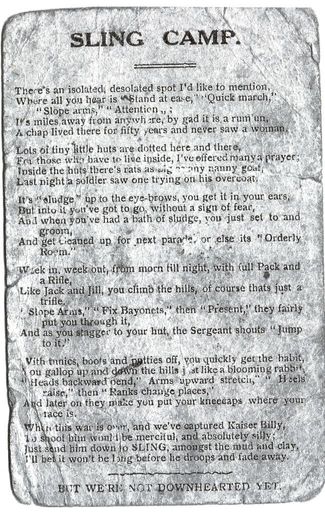 SLING CAMP.
There's an isolated, desolated spot I'd like to mention,
Where all you hear is "Stand at ease," "Quick march,"
"Slope arms," "Attention,, ;
It's miles away from anywhere, by gad it is a rum un,
A chap lived there for fifty years and never saw a woman.
Lots of tiny little huts are dotted here and there,
For those who have to live inside, I've offered many a prayer;
Inside the huts there's rats as big any nanny goat,
Last night a soldier saw one trying on his overcoat.
It's "sludge" up to the eye-brows, you get it in your ears,
But into it you've got to go, without a sign of fear,
And when you've had a bath of sludge, you just set to and
groom,
And get cleaned up for next parade, or else its "Orderly
Room."
Week in, week out, from morn till night, with full Pack and
a Rifle,
Like Jack and Jill, you climb the hills, of course thats just a
trifle,
"Slope Arms," "Fix Bayonets," then "Present," they fairly
put you through it,
And as you stagger to your hut, the Sergeant shouts "Jump
to it."
With tunics, boots and putties off, you quickly get the habit,
You gallop up and down the hills just like a blooming rabbit,
"Heads backward bend," Arms upward stretch," "Heels
raise," then "Ranks change places,"
And later on they make you put your kneecaps where your
face is.
When this war is over, and we've captured Kaiser Billy,
To shoot him would be merciful, and absolutely silly;
Just send him down to SLING, amongst the mud and clay,
I'll bet it won't be long before he droops and fade away.
BUT WE'RE NOT DOWNHEARTED YET.